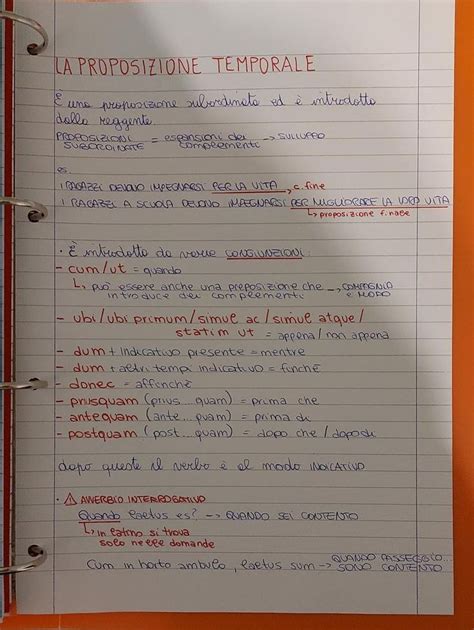 LA PROPOSIZIONE TEMPORALE
È una proposizione subordinata ed è introdotta
dalla reggente.
PROPOSIZIONI SUBORDINATE = espansioni dei complementi → SVILUPPO
es.
I RAGAZZI DEVONO IMPEGNARSI PER LA VITA → c. fine
I RAGAZZI A SCUOLA DEVONO IMPEGNARSI PER MIGLIORARE LA LORO VITA
↳ proposizione finale
· È introdotta da varie CONGIUNZIONI:
- cum/ut = quando
↳ può essere anche una preposizione che introduce dei complementi → COMPAGNIA E MODO
- ubi/ubi primum/simul ac/simul atque/
statim ut = appena/non appena
- dum + indicativo presente = mentre
- dum + altri tempi indicativo = finché
- donec = affinché
- priusquam (prius... quam) = prima che
- antequam (ante... quam) = prima di
- postquam (post... quam) = dopo che/dopodi
dopo queste il verbo è al modo INDICATIVO
· ⚠ AVVERBIO INTERROGATIVO
Quando laetus es? → QUANDO SEI CONTENTO
↳ in latino si trova
solo nelle domande
Cum in horto ambulo, laetus sum → QUANDO PASSEGGIO... SONO CONTENTO